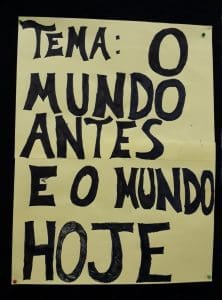 TEMA: O
MUNDO
ANTES
E O MUNDO
HOJE